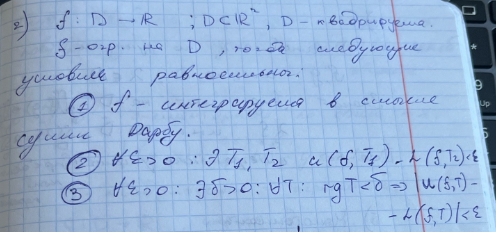 2) f: D → R ; D⊂R², D - квадрируема.
f - огр. на D, тогда следующие
условия равносильны:
① f - интегрируема в смысле
сумм Дарбу.
② ∀ε>0 : ∃ T₁, T₂ U(f, T₁) - L(f, T₂)<ε
③ ∀ε>0: ∃δ>0: ∀T: rgT<δ => |U(f,T) -
- L(f,T)|<ε